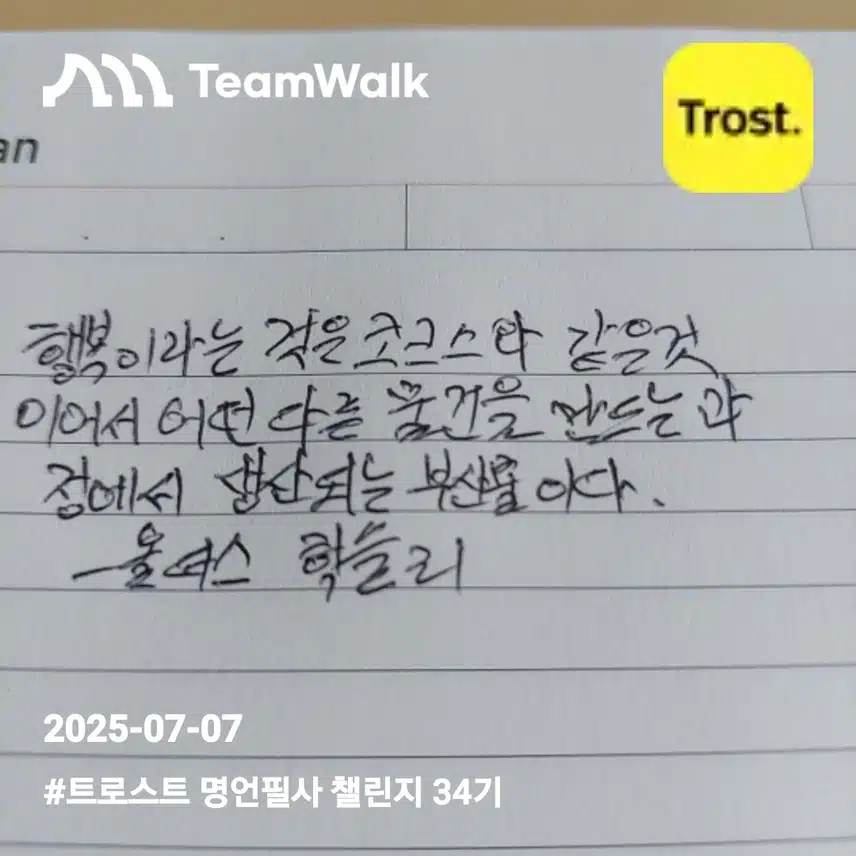 TeamWalk
Trost.
an
행복이라는 것은 코크스와 같은것
이어서 어떤 다른 물건을 만드는 과
정에서 생산되는 부산물이다.
- 올더스 헉슬리
2025-07-07
#트로스트 명언필사 챌린지 34기